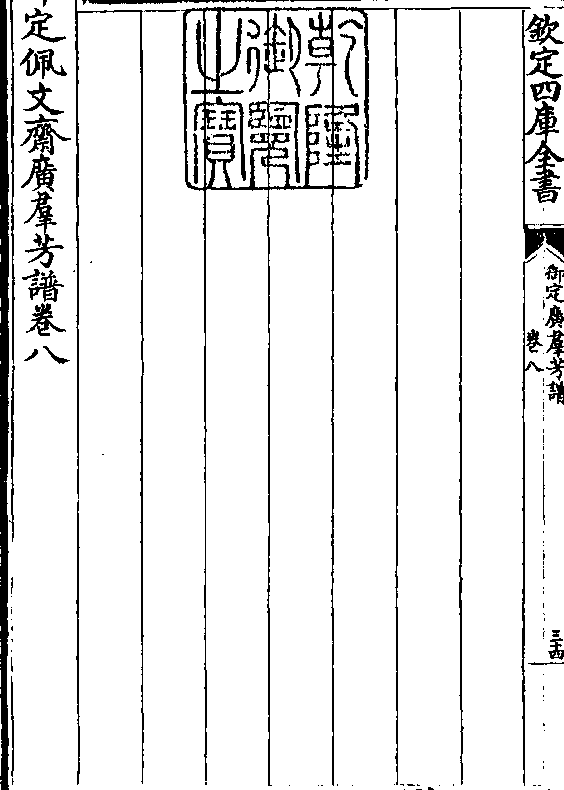 欽定四庫全書
御定廣羣芳譜
卷八
三十四
乾隆御覽之寶
定佩文齋廣羣芳譜卷八